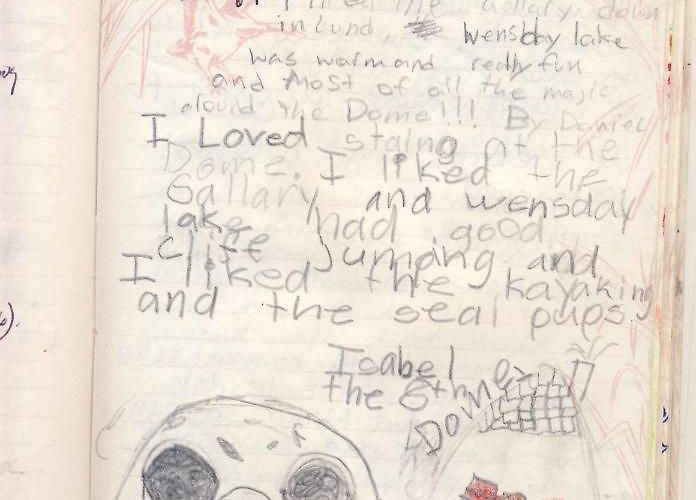 I liked the Gallary down
in Lund, wensday lake
was warm and redly fun
and Most of all the magic
around the Dome!!! By Daniel
I Loved staing at the
Dome. I liked the
Gallary and wensday
lake had good
Cliffe Jumping and
I liked the kayaking
and the seal pups.
Isabel
the 8th
Dome